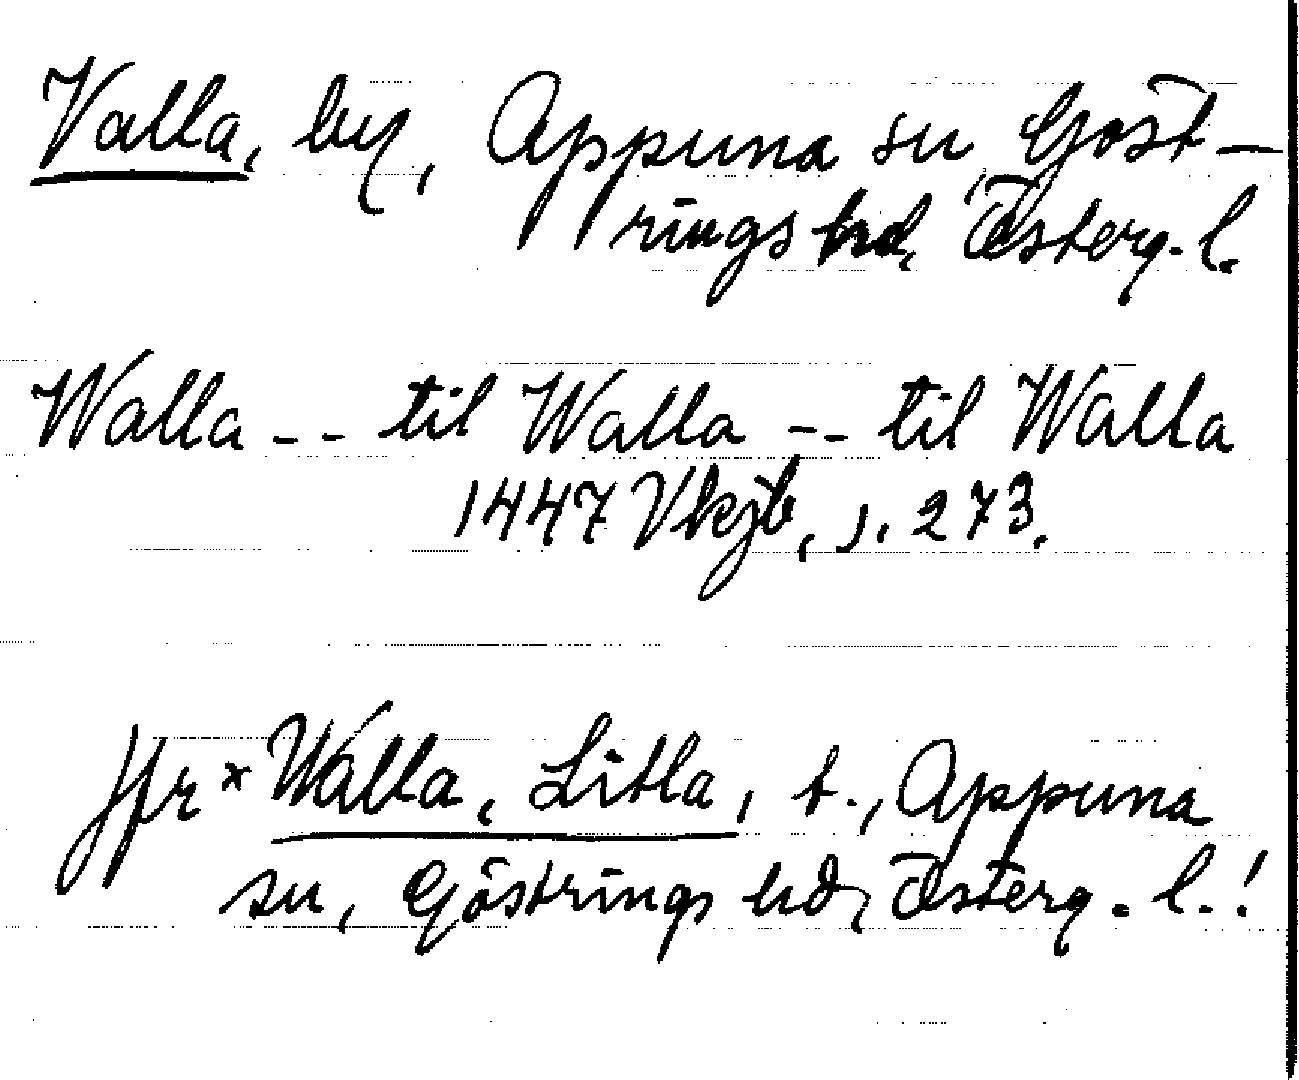 Valla, by, Appuna sn Göst-
rings hd, Österg. l.
Walla -- til Walla -- til Walla
1447 Vkjb, s. 273.
jfr * Walla, Litla, t., Appuna
sn, Göstrings hd, Österg. l.!